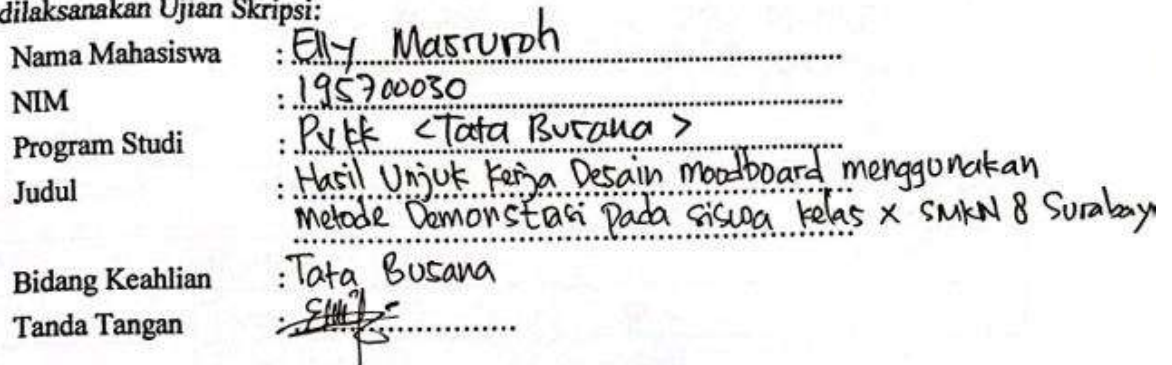 dilaksanakan Ujian Skripsi:
Nama Mahasiswa : Elly Masruroh
NIM : 195700030
Program Studi : PVKK <Tata Busana>
Judul : Hasil Unjuk Kerja Desain Moodboard menggunakan
metode Demonstasi pada siswa kelas X SMKN 8 Surabay
Bidang Keahlian : Tata Busana
Tanda Tangan :